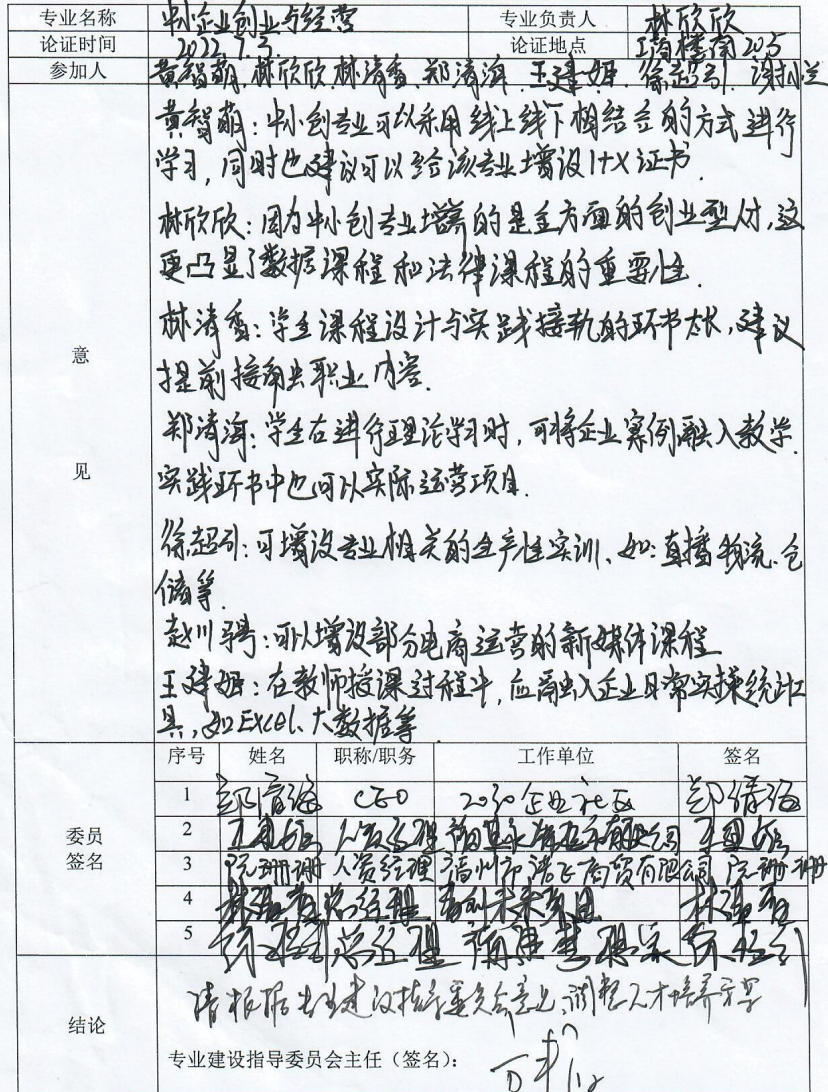 专业名称 中小企业创业与经营 专业负责人 林欣欣
论证时间 2022.7.3. 论证地点 工商楼南205
参加人 黄智萌、林欣欣、林清香、郑清海、王建姬、徐超引、
意见
黄智萌：中小创专业可以采用线上线下相结合的方式进行
学习，同时也建议可以给该专业增设1+X证书.
林欣欣：因为中小创专业培养的是全方面的创业型人付，这
更凸显了数据课程和法律课程的重要性.
林清香：学生课程设计与实践接轨的环节太长，建议
提前接触职业内容.
郑清海：学生在进行理论学习时，可将企业案例融入教学.
实践环节中也可以实际运营项目.
徐超引：可增设专业相关的生产性实训、如：直播、物流、仓
储等.
赵川骋：可以增设部分电商运营的新媒体课程
王建姬：在教师授课过程中，应融入企业日常实操统计工
具，如Excel、大数据等.
委员签名
序号 姓名 职称/职务 工作单位 签名
1 郑清海 CEO 2030企业社区 郑清海
2 王建姬 人资经理 王建姬
3 阮珊珊 人资经理 福州市诺飞商贸有限公司 阮珊珊
4 林清香 总经理 林清香
5 徐超引 总经理 徐超引
结论
请根据专业建设指导委员会意见，调整人才培养方案
专业建设指导委员会主任（签名）：